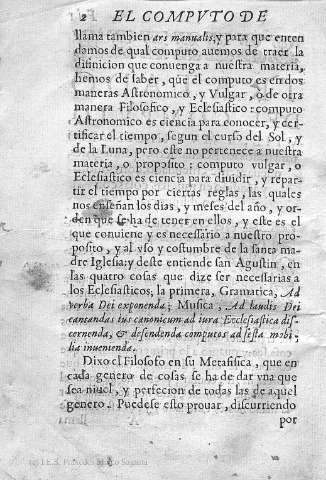 2 EL COMPVTO DE
llama tambien ars manualis, y para que enten
damos de qual computo auemos de traer la
difinicion que conuenga a nuestra materia,
hemos de saber, que el computo es en dos
maneras Astronomico, y Vulgar, o de otra
manera Filosofico, y Eclesiastico: computo
Astronomico es ciencia para conocer, y cer-
tificar el tiempo, segun el curso del Sol, y
de la Luna, pero este no pertenece a nuestra
materia, o proposito: computo vulgar, o
Eclesiastico es ciencia para diuidir, y repar-
tir el tiempo por ciertas reglas, las quales
nos enseñan los dias, y meses del año, y or-
den que se ha de tener en ellos, y este es el
que conuiene y es necessario a nuestro pro-
posito, y al vso y costumbre de la santa ma-
dre Iglesia: y deste entiende san Agustin, en
las quatro cosas que dize ser necessarias a
los Eclesiasticos; la primera, Gramatica, Ad
verba Dei exponenda; Musica, Ad laudis Dei
cantandas ius canonicum ad iura Ecclesiastica dis-
cernenda, & defendenda computos ad festa mobi-
lia inuenienda.
Dixo el Filosofo en su Metafisica, que en
cada genero de cosas se ha de dar vna que
sea niuel, y perfecion de todas las de aquel
genero. Puedese esto prouar, discurriendo
por